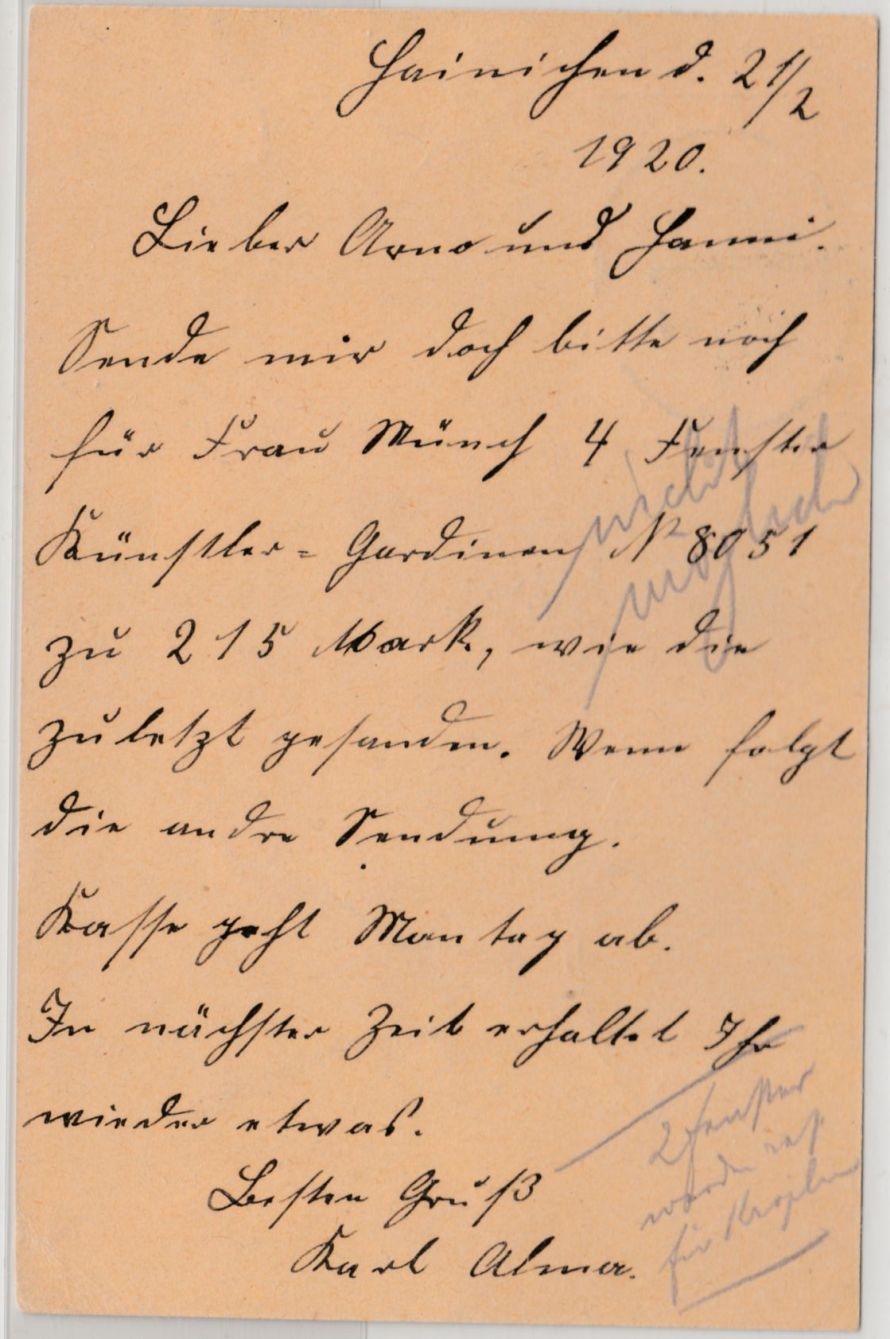 Hainichen d. 21/2
1920.
Lieber Arno und Hanni.
Sende mir doch bitte noch
für Frau Münch 4 Fenster
Künstler= Gardinen № 8051
zu 215 Mark, wie die
zuletzt gesanden. Wenn folgt
die andre Sendung.
Kasse geht Montag ab.
In nächster Zeit erhaltet Ihr
wieder etwas.
Besten Gruß
Karl Alma.
nicht
möglich
2 Fenster
werden
für